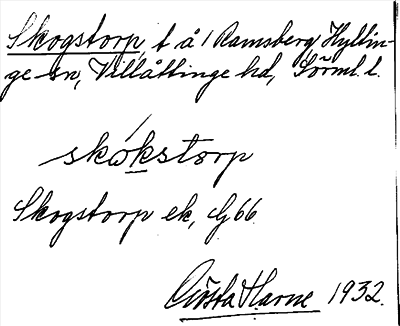 Skogstorp, t å 1 Ramsberg, Hyllin-
ge sn, Villåttinge hd, Sörml. l.
skωkstωrp
Skogstorp ek, G66.
Gösta Harne 1932.